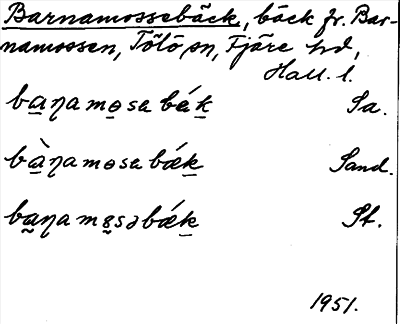 Barnamossebäck, bäck fr. Bar-
namossen, Tölö sn, Fjäre hd,
Hall. l.
ba̲ŋamo̲sa bék̲ Sa.
bà̲ŋamɵsa bǽk̲ Sand.
ba̰ŋamo̰sə bǽk̲ St.
1951.